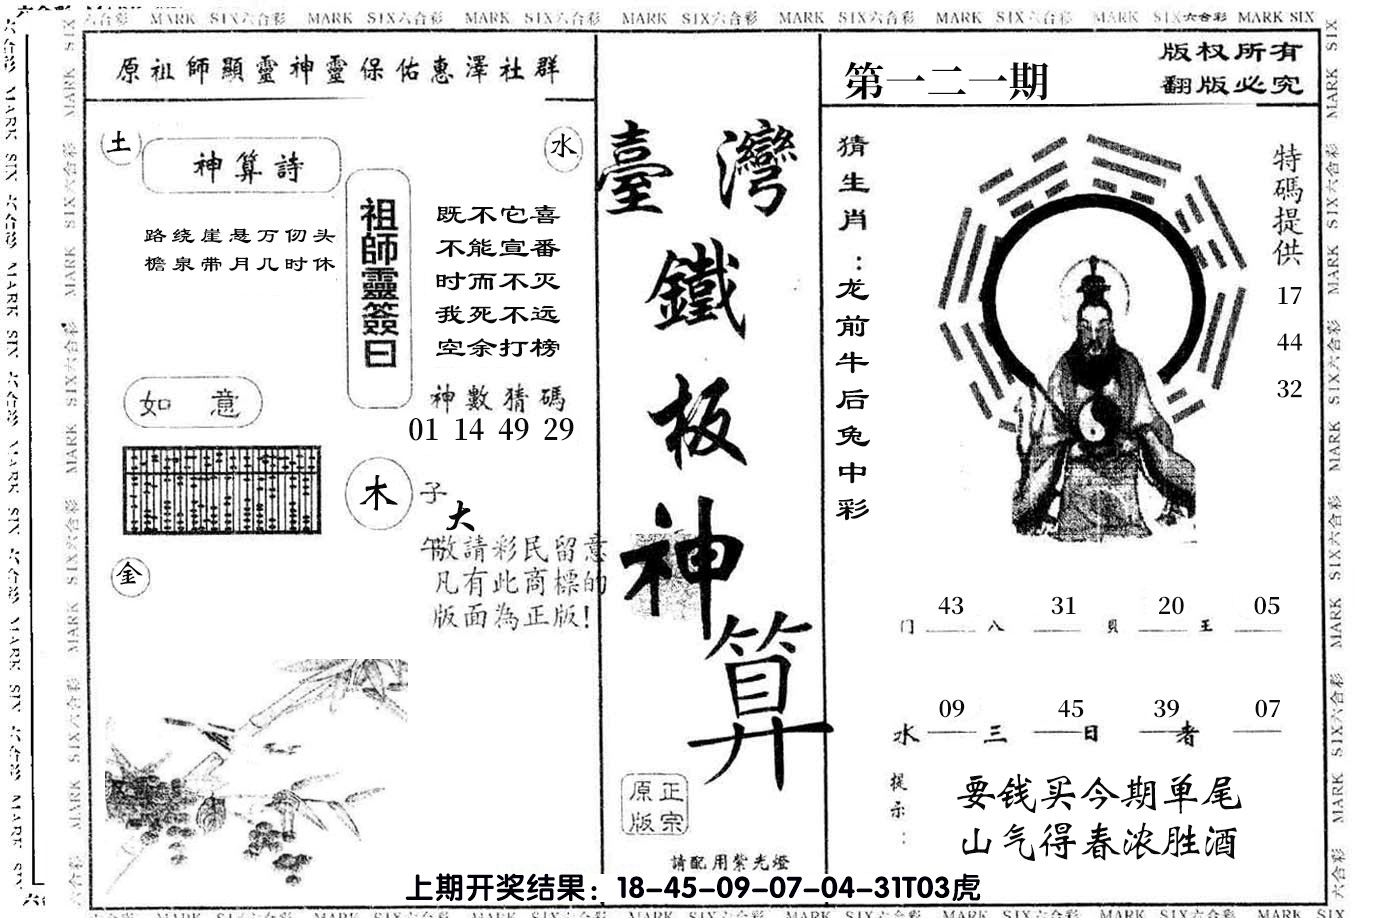 MARK SIX六合彩 MARK SIX六合彩 MARK SIX六合彩 MARK SIX六合彩 MARK SIX六合彩 MARK SIX六合彩 MARK SIX六合彩 MARK SIX
原祖師顯靈神靈保佑惠澤社群
土
神算詩
水
路绕崖悬万仞头
檐泉带月几时休
祖師靈簽曰
既不它喜
不能宣番
时而不灭
我死不远
空余打榜
神數猜碼
01 14 49 29
如意
木
子
大
午
敬請彩民留意
凡有此商標的
版面為正版!
金
臺灣
鐵
板
神
算
正宗
原版
請配用紫光燈
第一二一期
版权所有
翻版必究
猜生肖:龙前牛后兔中彩
特碼提供
17
44
32
43 31 20 05
门 八 貝 王
09 45 39 07
水 三 日 者
提示:
要钱买今期单尾
山气得春浓胜酒
上期开奖结果：18-45-09-07-04-31T03虎